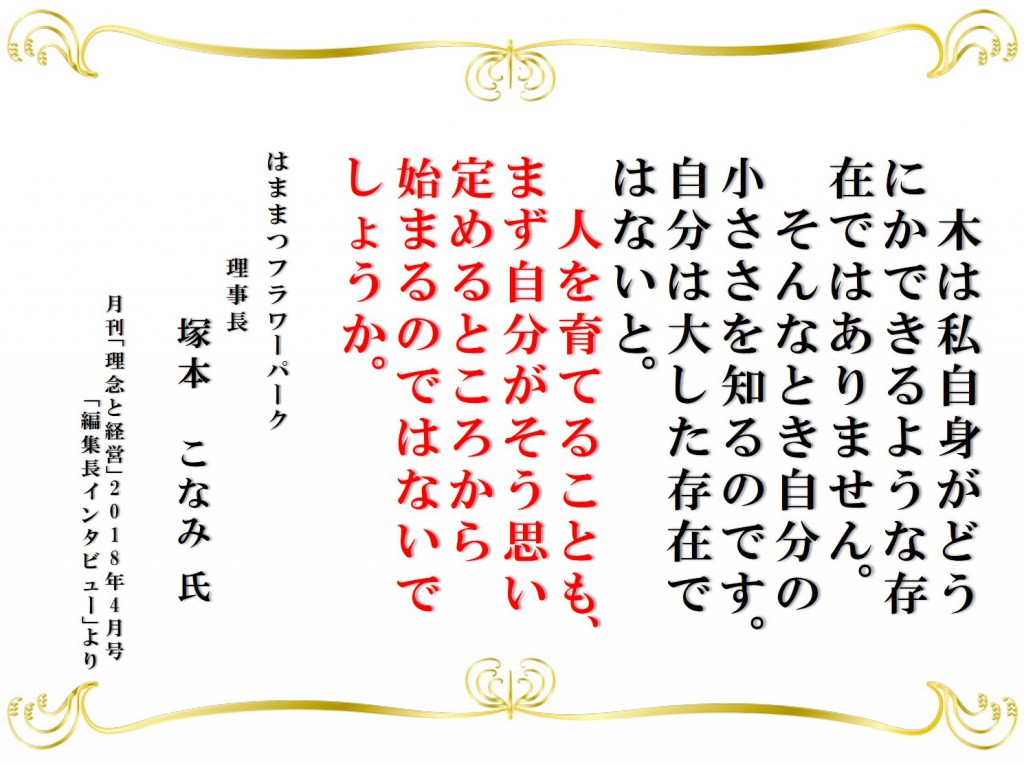 木は私自身がどう
にかできるような存
在ではありません。
そんなとき自分の
小ささを知るのです。
自分は大した存在で
はないと。
人を育てることも、
まず自分がそう思い
定めるところから
始まるのではないで
しょうか。
はままつフラワーパーク
理事長
塚本 こなみ 氏
月刊「理念と経営」2018年4月号
「編集長インタビュー」より